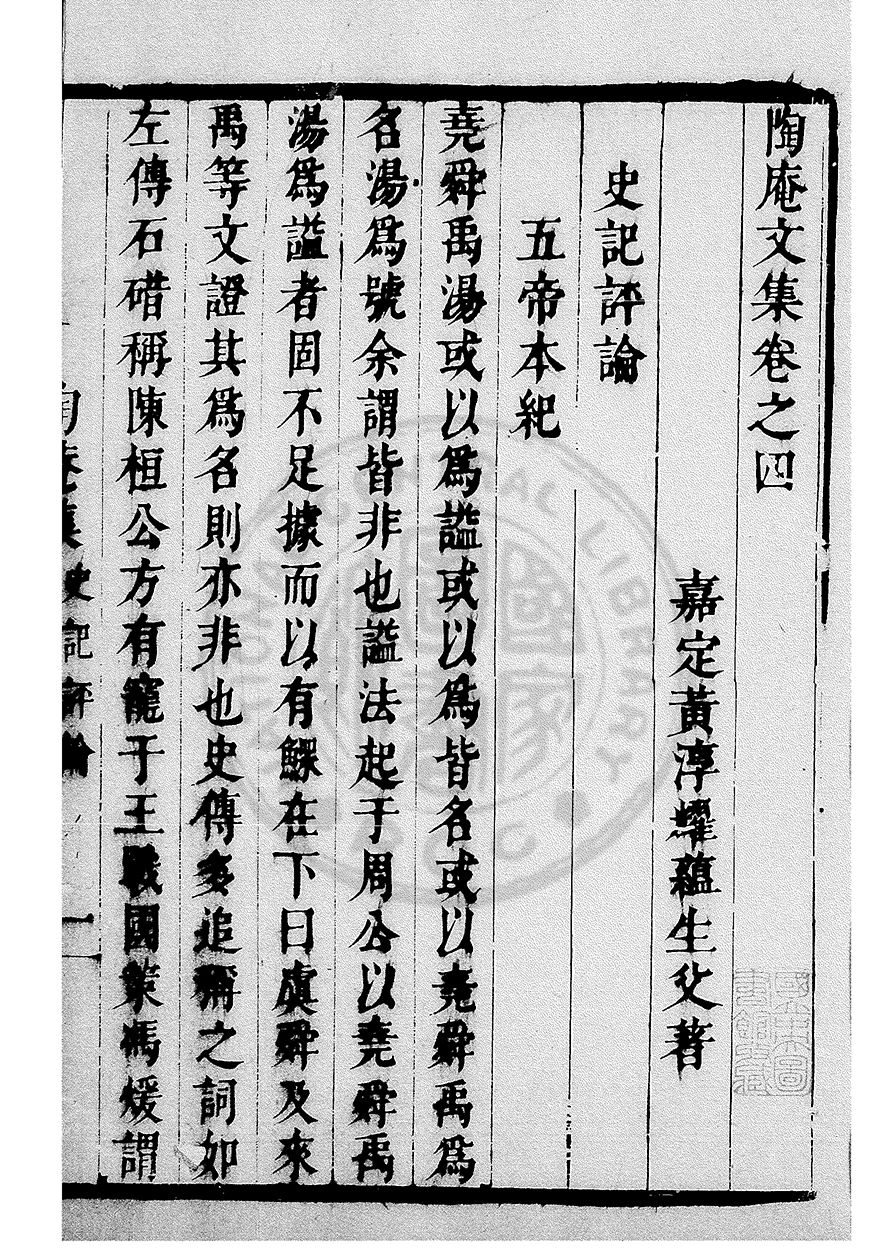 陶庵文集卷之四
嘉定黃淳耀蘊生父著
史記評論
五帝本紀
堯舜禹湯或以爲謚或以爲皆名或以堯舜禹爲
名湯爲號余謂皆非也謚法起于周公以堯舜禹
湯爲謚者固不足據而以有鰥在下曰虞舜及來
禹等文證其爲名則亦非也史傳多追稱之詞如
左傳石碏稱陳桓公方有寵于王戰國策馮煖謂
陶菴集 史記評論 一
國家圖書館藏
NATIONAL CENTRAL LIBRARY